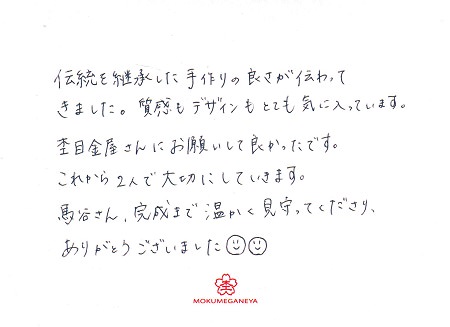 伝統を継承した手作りの良さが伝わって
きました。質感もデザインもとても気に入っています。
杢目金屋さんにお願いして良かったです。
これから2人で大切にしていきます。
馬谷さん、完成まで温かく見守ってくださり、
ありがとうございました
MOKUMEGANEYA